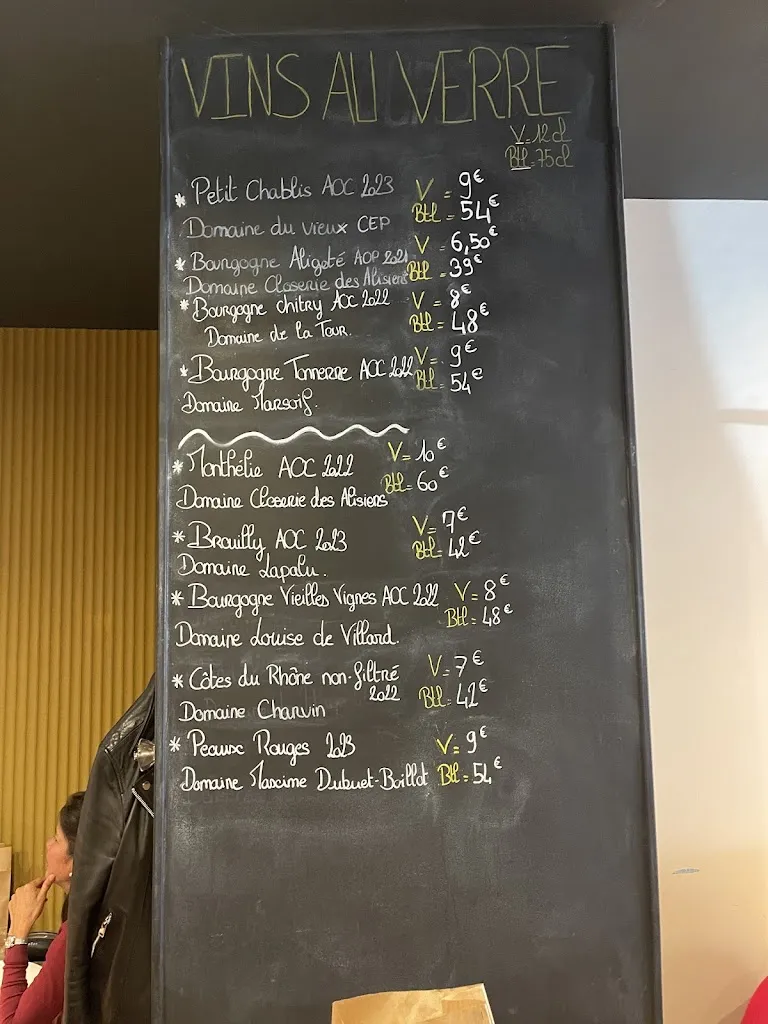 VINS AU VERRE
V=12cl
Btl=75cl
* Petit Chablis AOC 2023 V = 9€
Btl = 54€
Domaine du vieux CEP
* Bourgogne Aligoté AOP 2021 V = 6,50€
Domaine Closerie des Alisiers Btl = 39€
* Bourgogne chitry AOC 2022 V = 8€
Domaine de la Tour. Btl = 48€
* Bourgogne Tonnerre AOC 2022 V = 9€
Btl = 54€
Domaine Marsoif.
* Monthélie AOC 2022 V = 10€
Btl = 60€
Domaine Closerie des Alisiers
* Brouilly AOC 2023 V = 7€
Btl = 42€
Domaine Lapalu.
* Bourgogne Vieilles Vignes AOC 2022 V = 8€
Btl = 48€
Domaine Louise de Villard.
* Côtes du Rhône non-filtré V = 7€
2022 Btl = 42€
Domaine Charvin
* Peaux Rouges 2023 V = 9€
Domaine Maxime Dubuet-Boillot Btl = 54€